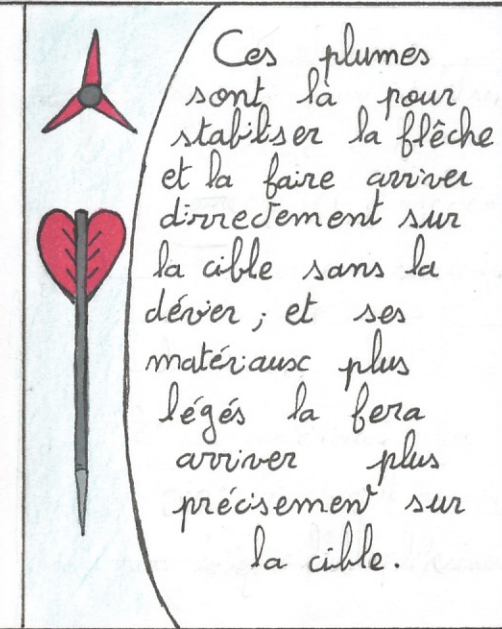 Ces plumes
sont là pour
stabiliser la flêche
et la faire arriver
dirrectement sur
la cible sans la
dévier ; et ses
matériaux plus
légés la fera
arriver plus
précisement sur
la cible.